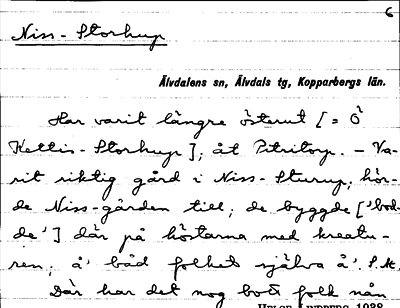 6
Niss-Storhup
Älvdalens sn, Älvdals tg, Kopparbergs län.
Har varit längre österut [= Ö
Kettis-Storhup]; åt Pitritorp. - Va-
rit riktig gård i Niss-Sturup; hör-
de Niss-gården till; de byggde ['bod-
de'] där på höstarna med kreatu-
ren; å' båd folket själva å'. S.M.
Där har det nog bott folk når
Lindberg 1938